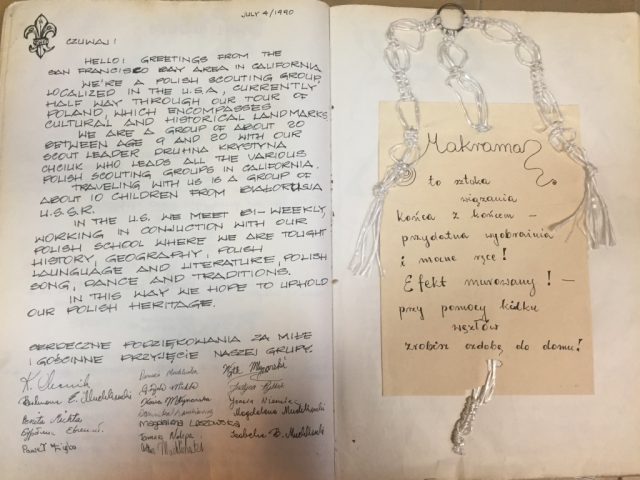 JULY 4/1990
CZUWAJ!
HELLO! GREETINGS FROM THE
SAN FRANCISCO BAY AREA IN CALIFORNIA.
WE'RE A POLISH SCOUTING GROUP,
LOCALIZED IN THE U.S.A, CURRENTLY
HALF WAY THROUGH OUR TOUR OF
POLAND, WHICH ENCOMPASSES
CULTURAL AND HISTORICAL LANDMARKS.
WE ARE A GROUP OF ABOUT 20
BETWEEN AGE 9 AND 20 WITH OUR
SCOUT LEADER DRUHNA KRYSTYNA
CHCIUK WHO LEADS ALL THE VARIOUS
POLISH SCOUTING GROUPS IN CALIFORNIA.
TRAVELING WITH US IS A GROUP OF
ABOUT 10 CHILDREN FROM BIAŁORUSIA
U.S.S.R.
IN THE U.S. WE MEET BI-WEEKLY,
WORKING IN CONJUCTION WITH OUR
POLISH SCHOOL WHERE WE ARE TOUGHT
HISTORY, GEOGRAPHY, POLISH
LANGUAGE AND LITERATURE, POLISH
SONG, DANCE AND TRADITIONS.
IN THIS WAY WE HOPE TO UPHOLD
OUR POLISH HERITAGE.
SERDECZNE PODZIĘKOWANIA ZA MIŁE
I GOŚCINNE PRZYJĘCIE NASZEJ GRUPY.
Magdalena
MAGDALENA
Paweł Zięba
Tomasz
Izabella B.
Makrama
to sztuka
wiązania
końca z końcem –
przydatna wyobraźnia
i mocne ręce!
Efekt murowany! –
przy pomocy kilku
węzłów
zrobisz ozdobę do domu!